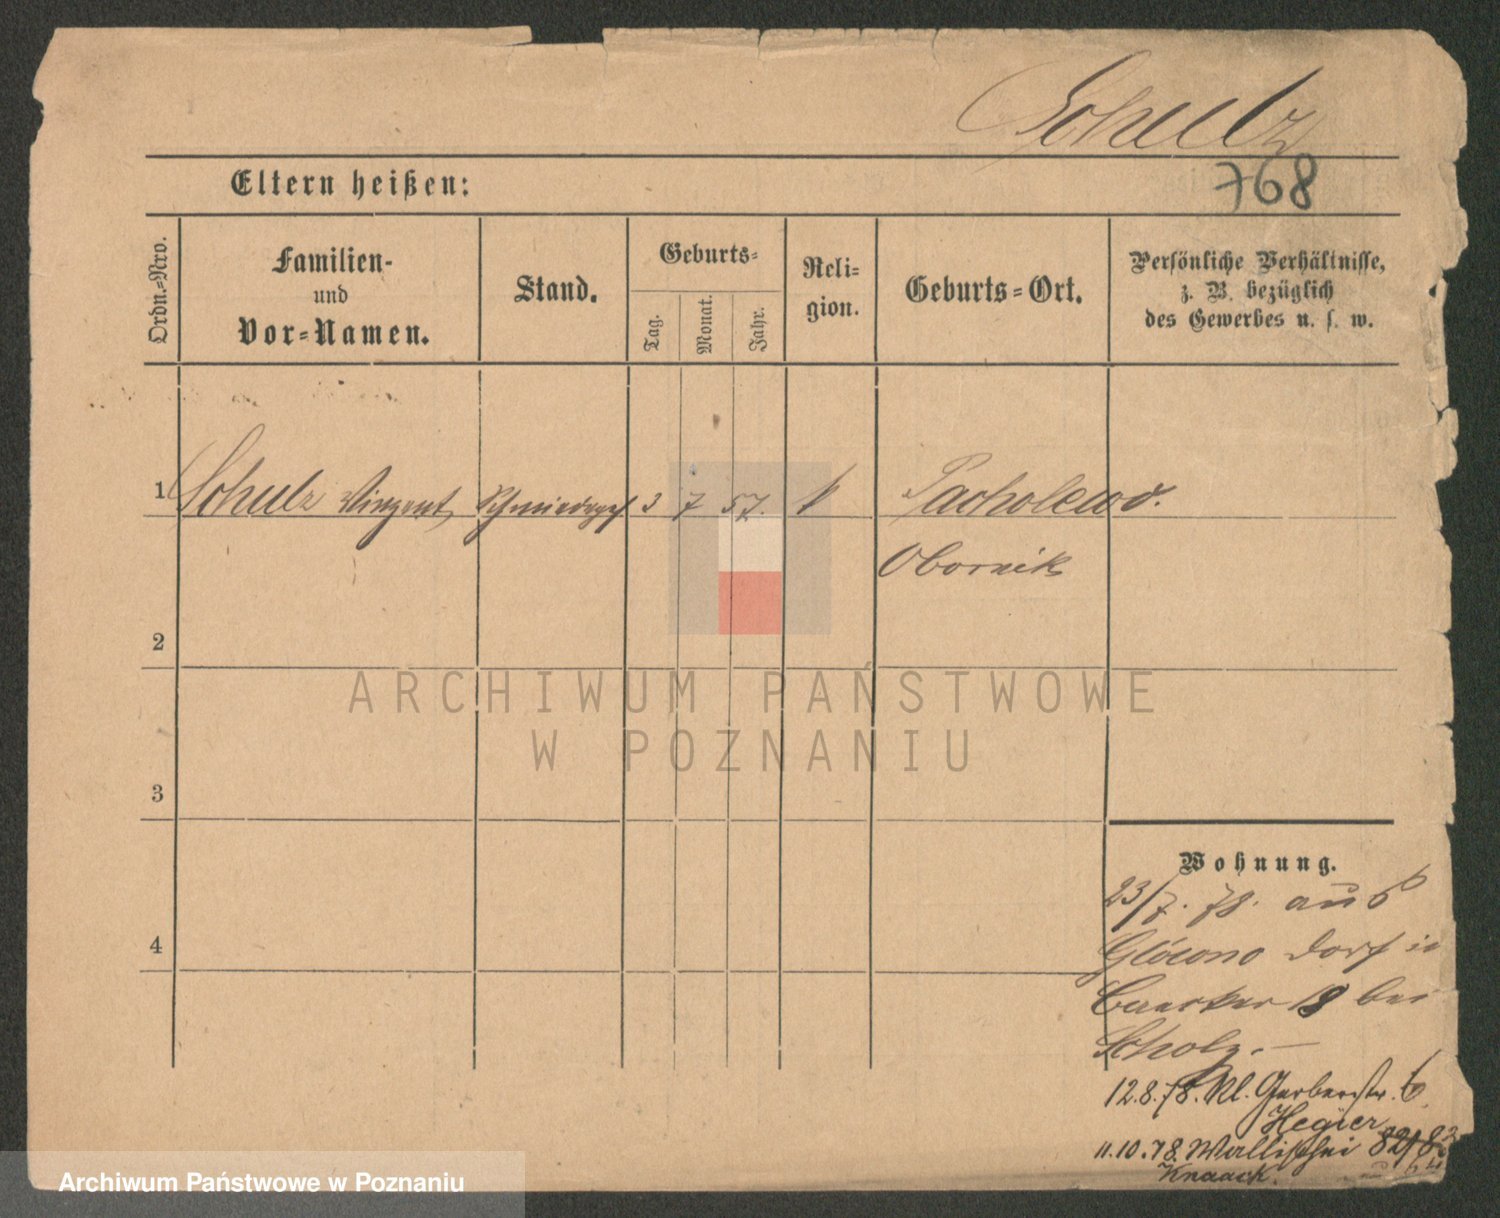 Schulz
768
Eltern heißen:
Ordn.-Nro.
Familien-
und
Vor-Namen.
Stand.
Geburts-
Tag.
Monat.
Jahr.
Reli-
gion.
Geburts-Ort.
Persönliche Verhältnisse,
z. B. bezüglich
des Gewerbes u. s. w.
1 Schulz Vinzent Schmiedeges 3 7 57. k Pacholewo.
Obornik
2
3
4
ARCHIWUM PAŃSTWOWE
W POZNANIU
Wohnung.
23/7. 78. aus
Glówno Dorf in
18 bei
Scholz.
12.8.78. Kl. Gerberstr. 6.
Hegier
11.10.78. Wallischei 82/83
Knaack.
Archiwum Państwowe w Poznaniu